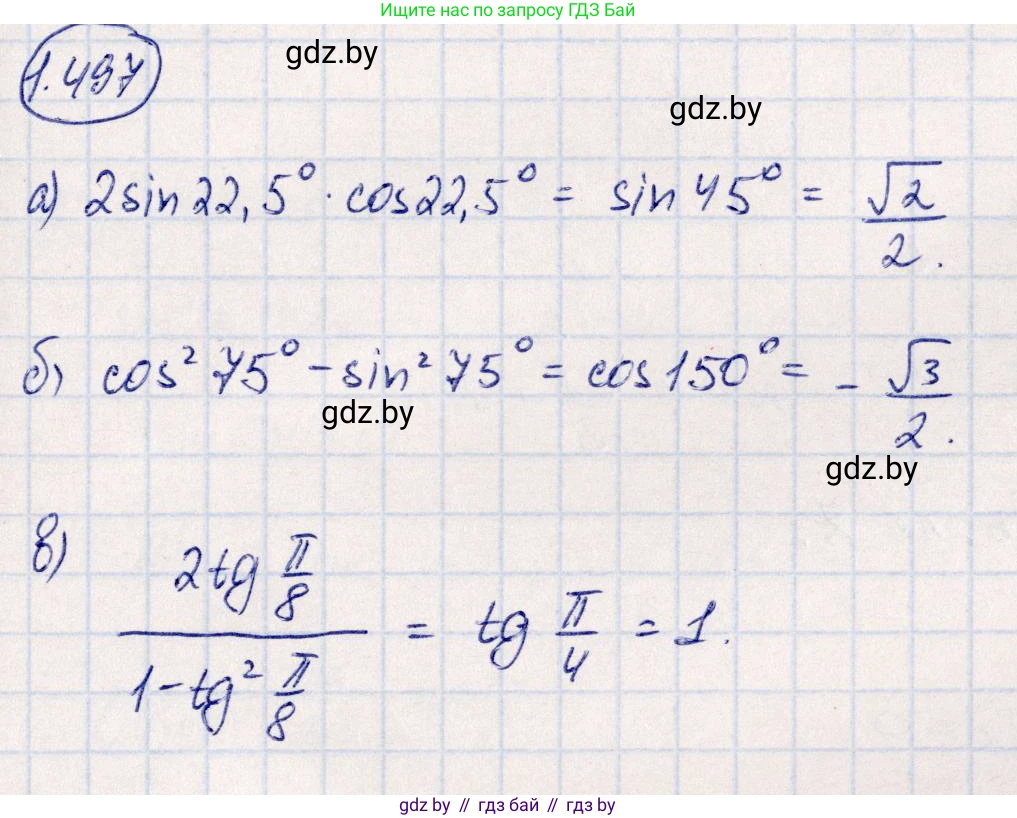 Ищите нас по запросу ГДЗ Бай
1.497
gdz.by
gdz.by
а) 2sin22,5° · cos22,5° = sin45° = √2/2.
б) cos² 75° - sin² 75° = cos150° = -√3/2.
gdz.by
gdz.by
в) (2tg π/8)/(1-tg² π/8) = tg π/4 = 1.
gdz by // гдз бай // гдз by